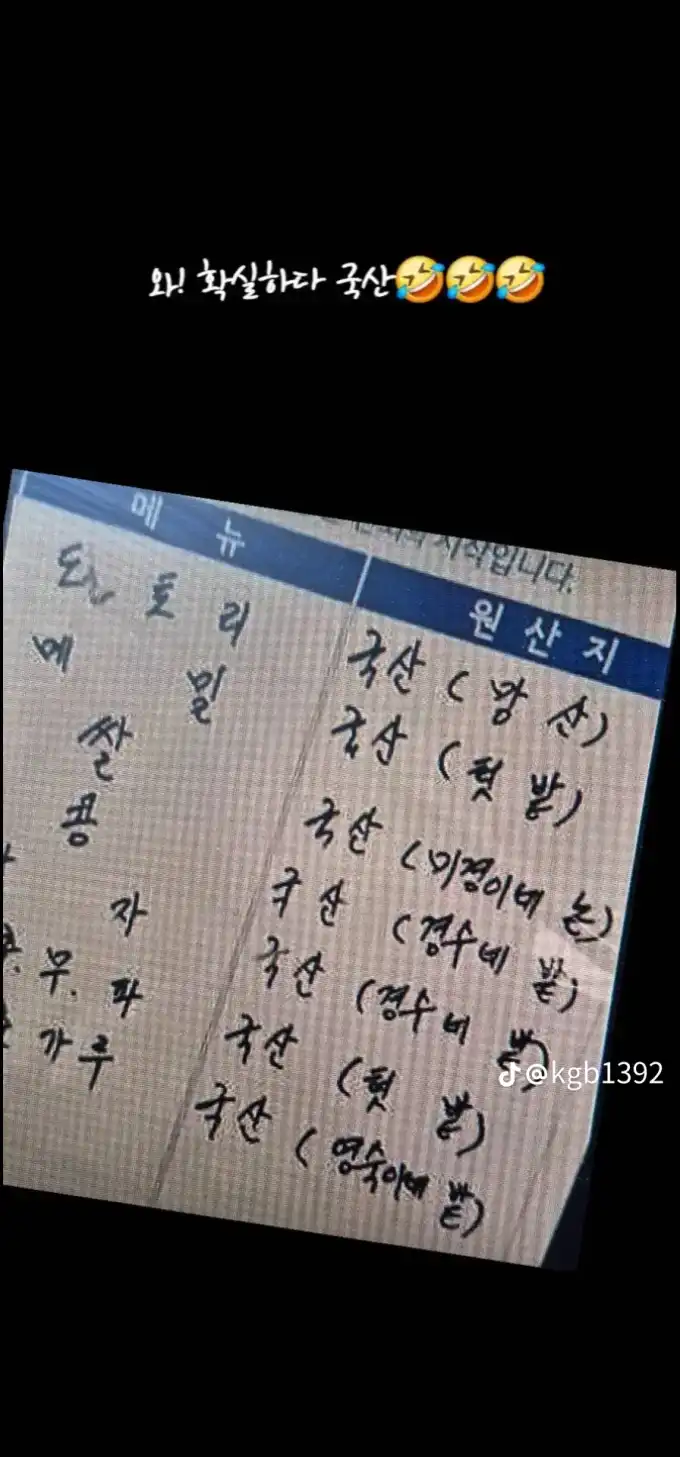 와! 확실하다 국산🤣🤣🤣
시작입니다.
메 뉴 원 산 지
도 토 리 국산 ( 앞 산)
메 밀 국산 (텃 밭)
쌀 국산 (미경이네 논)
콩 국산 (경수네 밭)
자 국산 (경수네 밭)
무. 파 국산 (텃 밭)
가루 국산 (영숙이네 밭)
@kgb1392